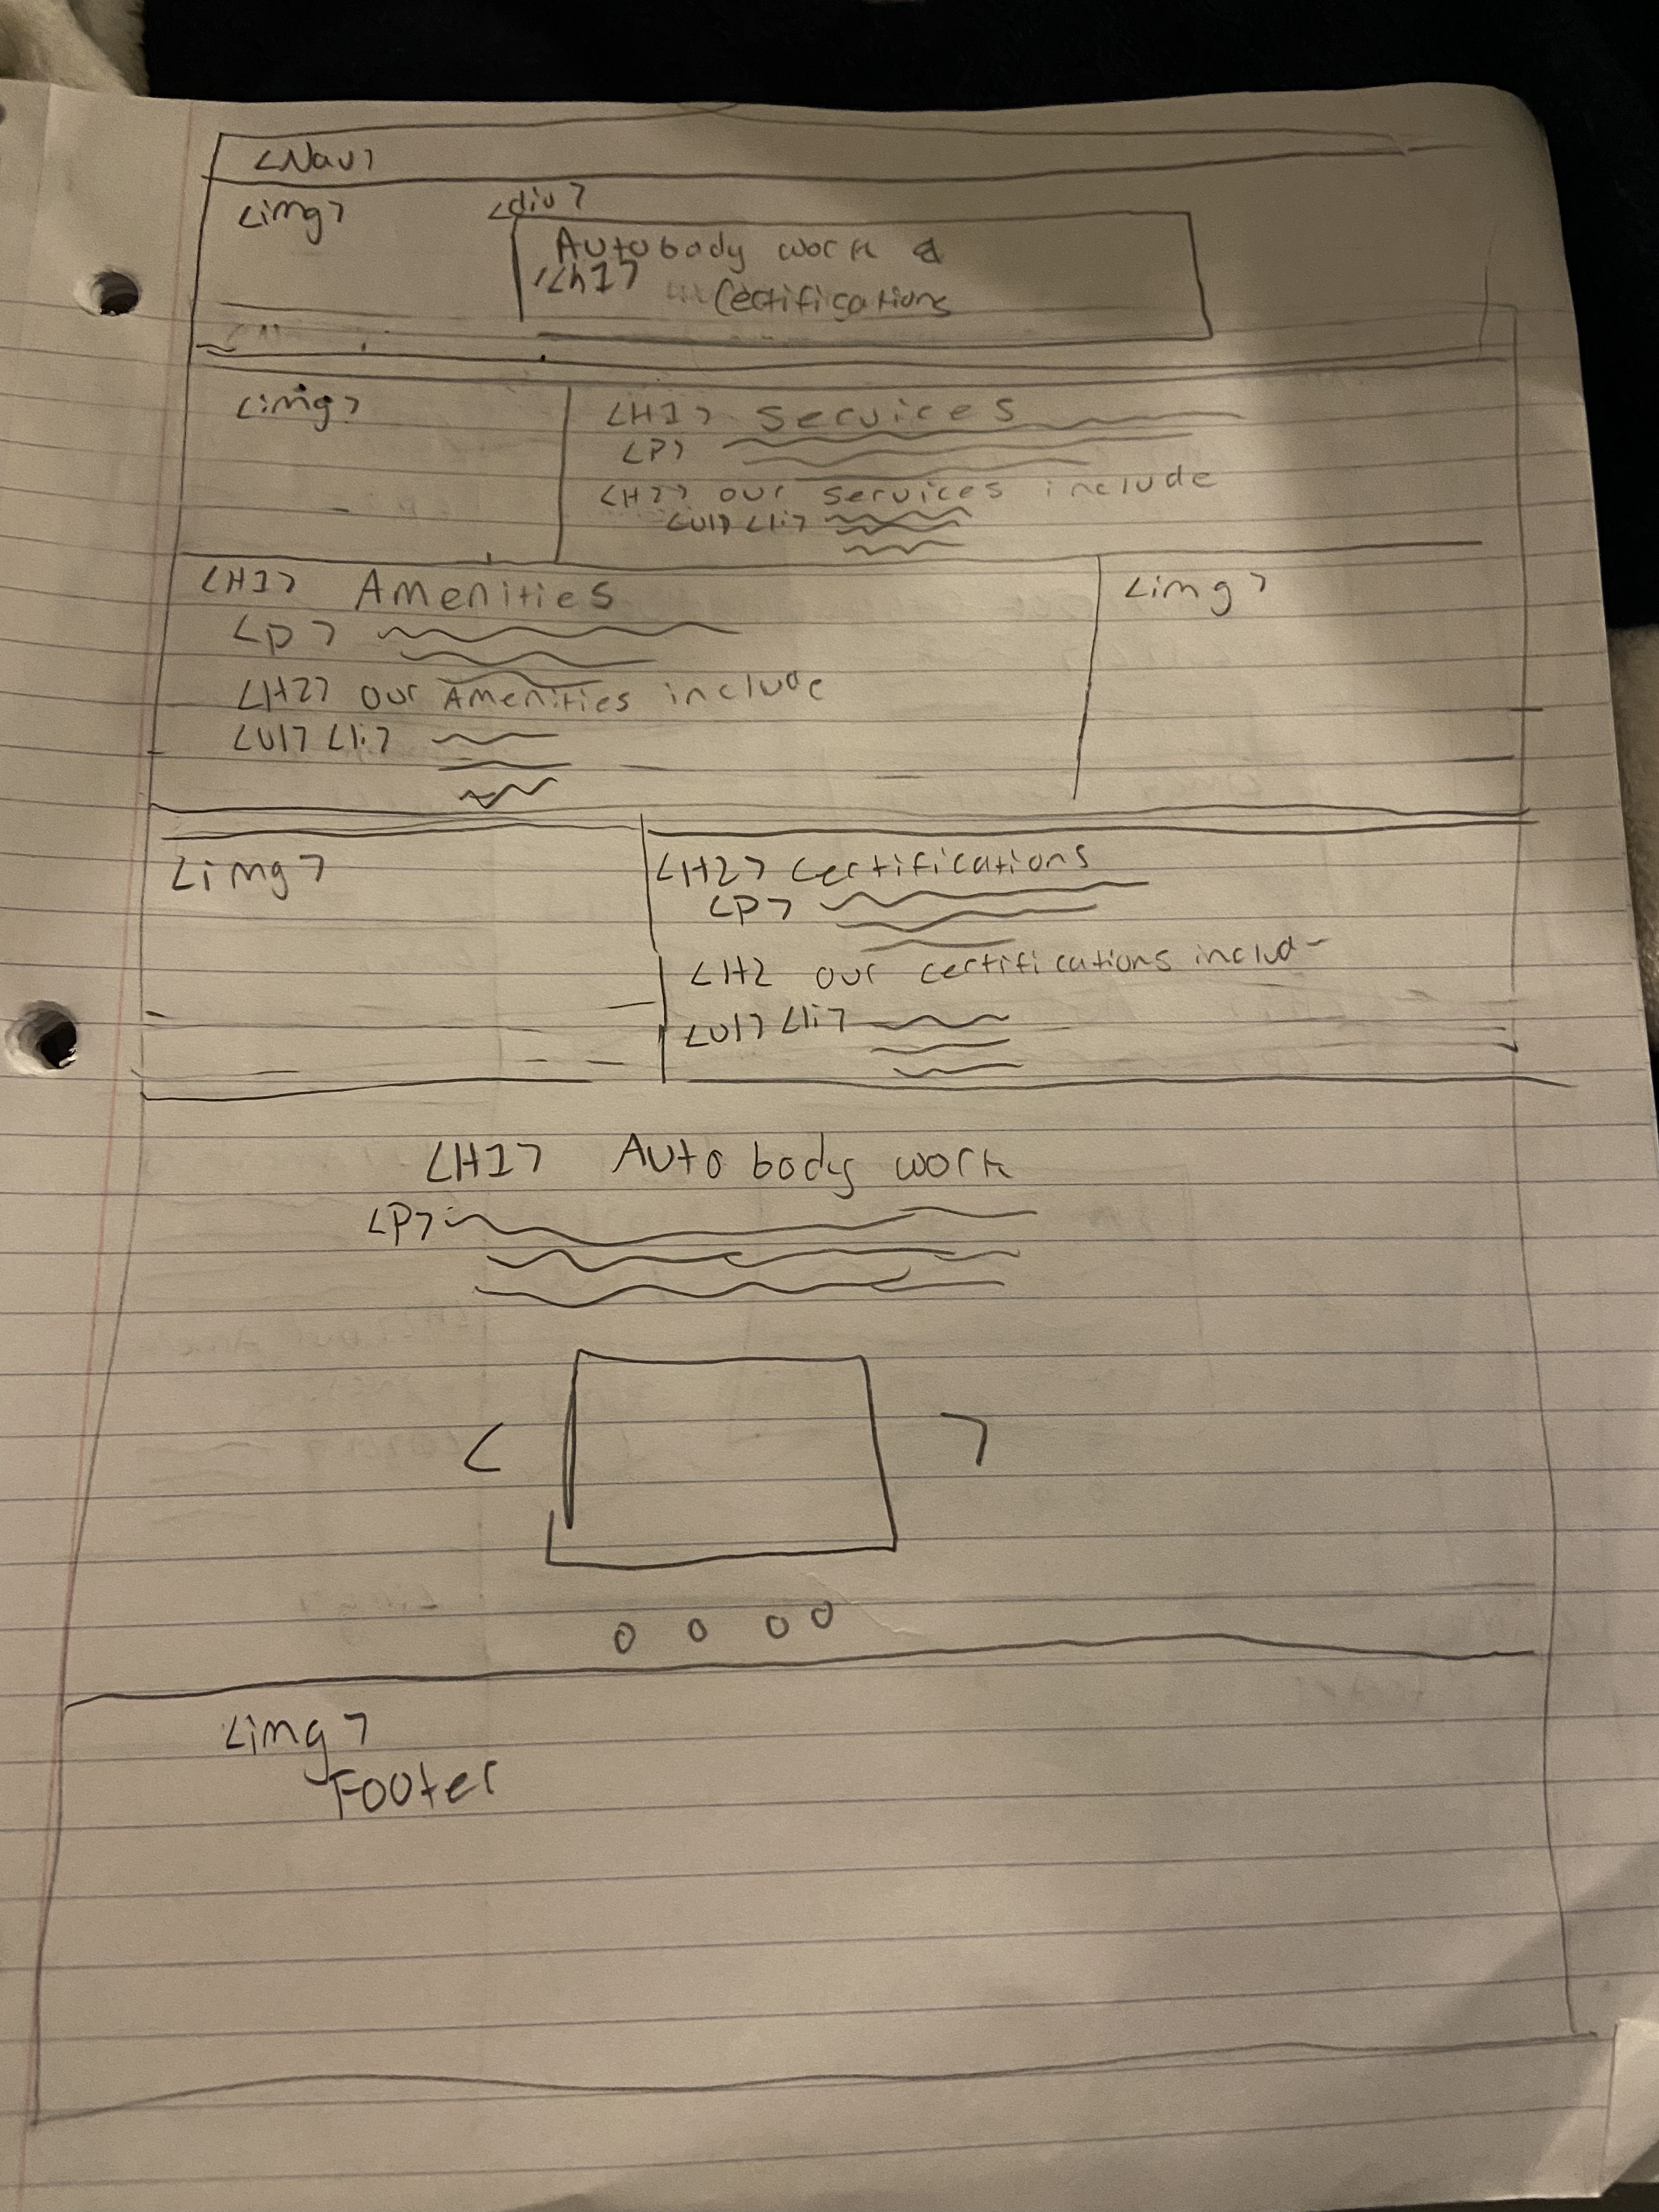 <Nav>
<img>
<div>
Autobody work &
<h1>
Certifications
<img>
<H1> Services
<P>
<H2> our services include
<Ul> <li>
<H1> Amenities
<P>
<H2> our Amenities include
<Ul> <li>
<img>
<img>
<H2> Certifications
<P>
<H2 our certifications includ
<Ul> <li>
<H1> Auto body work
<P>
< >
<img>
Footer